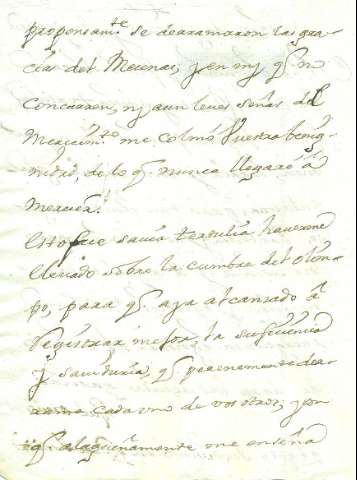 propensam.te se dearamaron las gra-
cias del Mecenas, y en mj q.e no
concurren, nj aun leves señas del
Mereçim.to me colmó Vuestra benig-
nidad, de lo q. nunca llegaré á
mereçer.
Esto fue savia tertulia haverme
llevado sobre la cumbre del olim-
po, para q. aya alcanzado á
registrar mejor la suficiencia
y saviduria, q. perenemente der-
rama cada uno de vosotros; y en
q. alagueñamente me enseña